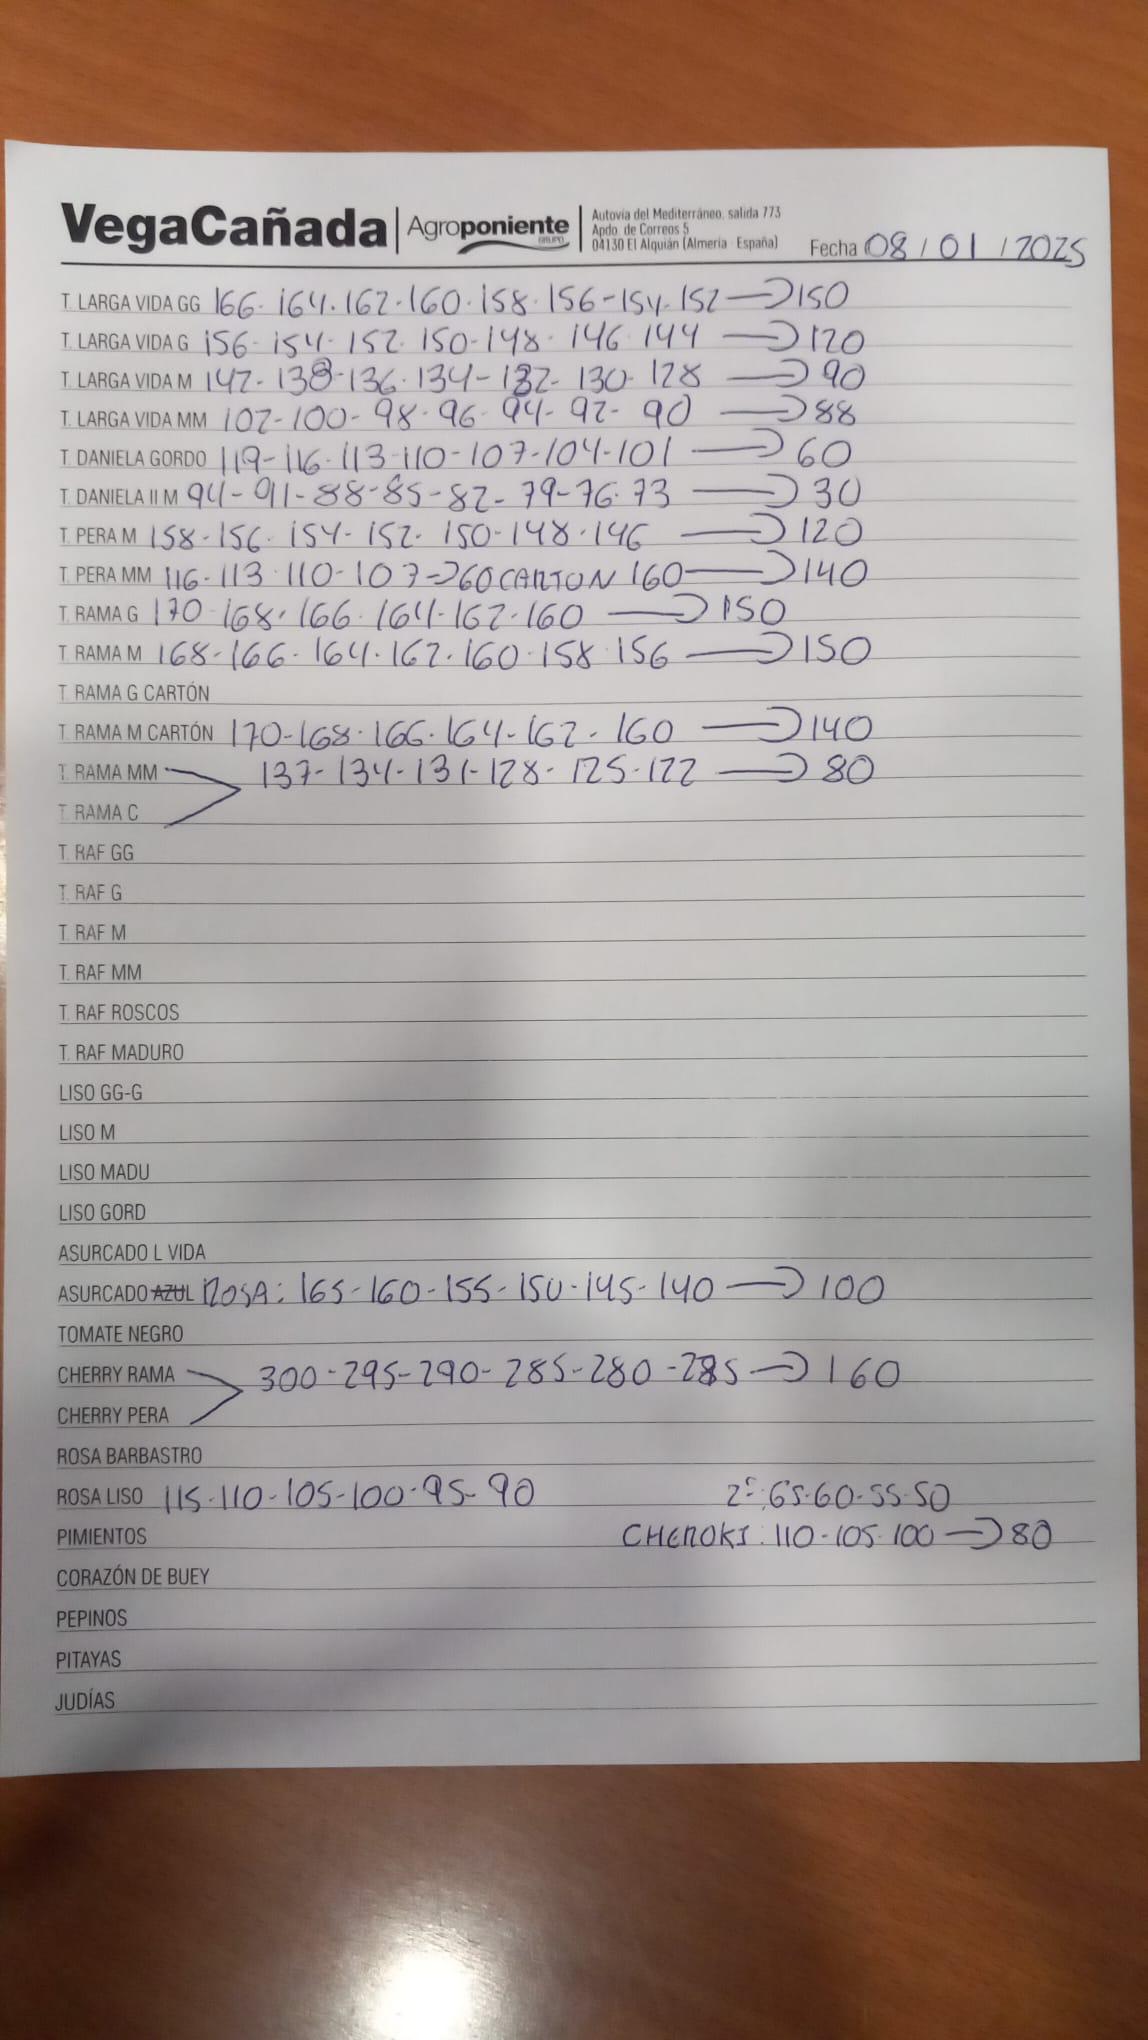 VegaCañada | Agroponiente GRUPO | Autovía del Mediterráneo, salida 773
Apdo. de Correos 5
04130 El Alquián (Almería - España)
Fecha 08/01/2025
T. LARGA VIDA GG 166-164-162-160-158-156-154-152→150
T. LARGA VIDA G 156-154-152-150-148-146-144→120
T. LARGA VIDA M 142-138-136-134-132-130-128→90
T. LARGA VIDA MM 102-100-98-96-94-92-90→88
T. DANIELA GORDO 119-116-113-110-107-104-101→60
T. DANIELA II M 94-91-88-85-82-79-76-73→30
T. PERA M 158-156-154-152-150-148-146→120
T. PERA MM 116-113-110-107→60 CARTON 160→140
T. RAMA G 170-168-166-164-162-160→150
T. RAMA M 168-166-164-162-160-158-156→150
T. RAMA G CARTÓN
T. RAMA M CARTÓN 170-168-166-164-162-160→140
T. RAMA MM 137-134-131-128-125-122→80
T. RAMA C
T. RAF GG
T. RAF G
T. RAF M
T. RAF MM
T. RAF ROSCOS
T. RAF MADURO
LISO GG-G
LISO M
LISO MADU
LISO GORD
ASURCADO L VIDA
ASURCADO AZUL ROSA: 165-160-155-150-145-140→100
TOMATE NEGRO
CHERRY RAMA 300-295-290-285-280-285→160
CHERRY PERA
ROSA BARBASTRO
ROSA LISO 115-110-105-100-95-90 2ª:65-60-55-50
PIMIENTOS CHEROKI: 110-105-100→80
CORAZÓN DE BUEY
PEPINOS
PITAYAS
JUDÍAS